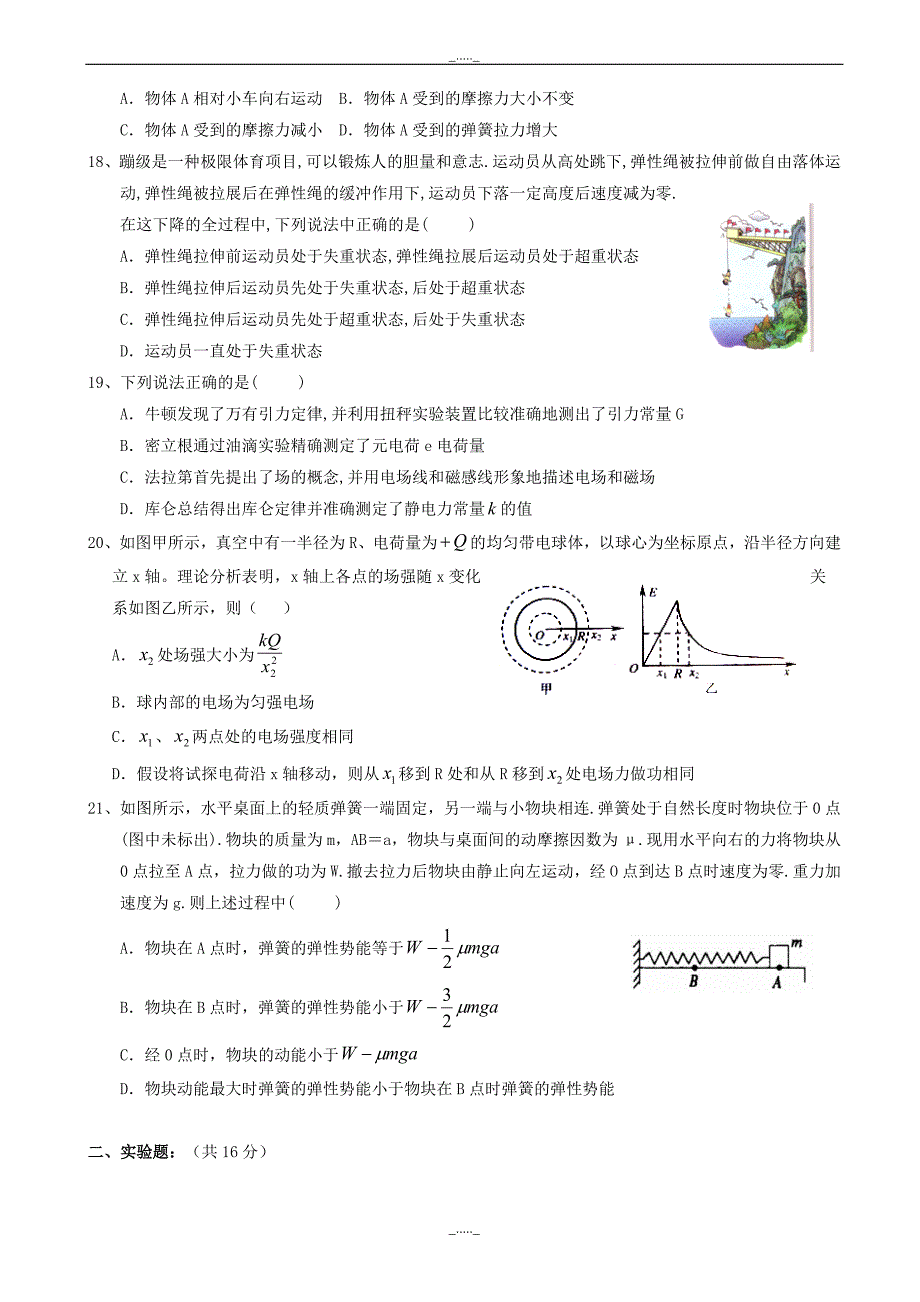 _....._
A. 物体A相对小车向右运动 B. 物体A受到的摩擦力大小不变
C. 物体A受到的摩擦力减小 D. 物体A受到的弹簧拉力增大
18、蹦级是一种极限体育项目,可以锻炼人的胆量和意志.运动员从高处跳下,弹性绳被拉伸前做自由落体运
动,弹性绳被拉展后在弹性绳的缓冲作用下,运动员下落一定高度后速度减为零.
在这下降的全过程中,下列说法中正确的是( )
A. 弹性绳拉伸前运动员处于失重状态,弹性绳拉展后运动员处于超重状态
B. 弹性绳拉伸后运动员先处于失重状态,后处于超重状态
C. 弹性绳拉伸后运动员先处于超重状态,后处于失重状态
D. 运动员一直处于失重状态
19、下列说法正确的是( )
A. 牛顿发现了万有引力定律,并利用扭秤实验装置比较准确地测出了引力常量G
B. 密立根通过油滴实验精确测定了元电荷e电荷量
C. 法拉第首先提出了场的概念,并用电场线和磁感线形象地描述电场和磁场
D. 库仑总结得出库仑定律并准确测定了静电力常量k的值
20、如图甲所示，真空中有一半径为R、电荷量为+Q的均匀带电球体，以球心为坐标原点，沿半径方向建
立x轴。理论分析表明，x轴上各点的场强随x变化 关
系如图乙所示，则（ ）
O x₁ R x₂ x
甲
E O x₁ R x₂ x
乙
A. x₂处场强大小为kQ/x₂²
B. 球内部的电场为匀强电场
C. x₁、x₂两点处的电场强度相同
D. 假设将试探电荷沿x轴移动，则从x₁移到R处和从R移到x₂处电场力做功相同
21、如图所示，水平桌面上的轻质弹簧一端固定，另一端与小物块相连.弹簧处于自然长度时物块位于O点
(图中未标出).物块的质量为m，AB＝a，物块与桌面间的动摩擦因数为μ.现用水平向右的力将物块从
O点拉至A点，拉力做的功为W.撤去拉力后物块由静止向左运动，经O点到达B点时速度为零.重力加
速度为g.则上述过程中( )
A. 物块在A点时，弹簧的弹性势能等于W－1/2μmga
m
B A
B. 物块在B点时，弹簧的弹性势能小于W－3/2μmga
C. 经O点时，物块的动能小于W－μmga
D. 物块动能最大时弹簧的弹性势能小于物块在B点时弹簧的弹性势能
二、实验题：（共16分）
_....._